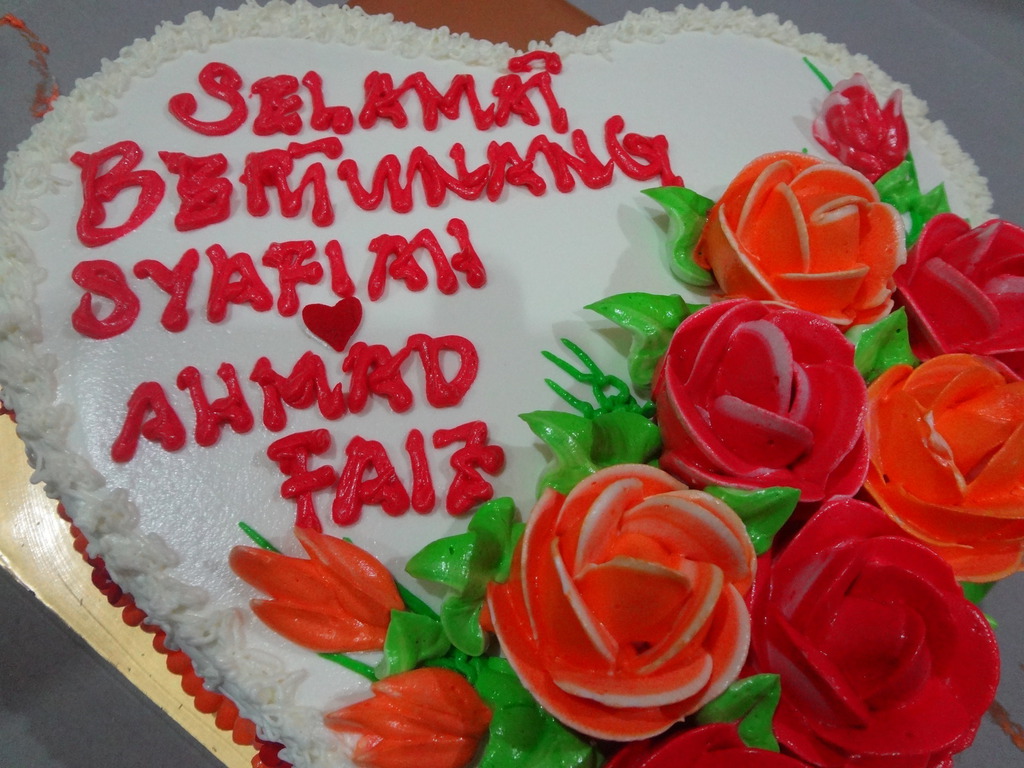 SELAMAT
BERTUNANG
SYAFIAH
AHMAD
FAIZ